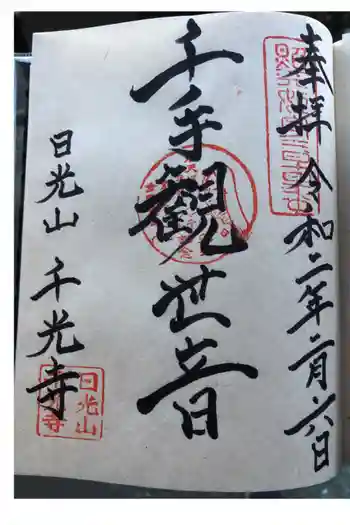 奉拝 令和二年二月六日
千手観世音
日光山 千光寺
日光山
千光寺